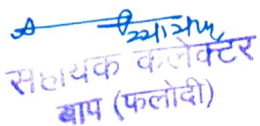 सहायक कलेक्टर
बाप (फलोदी)